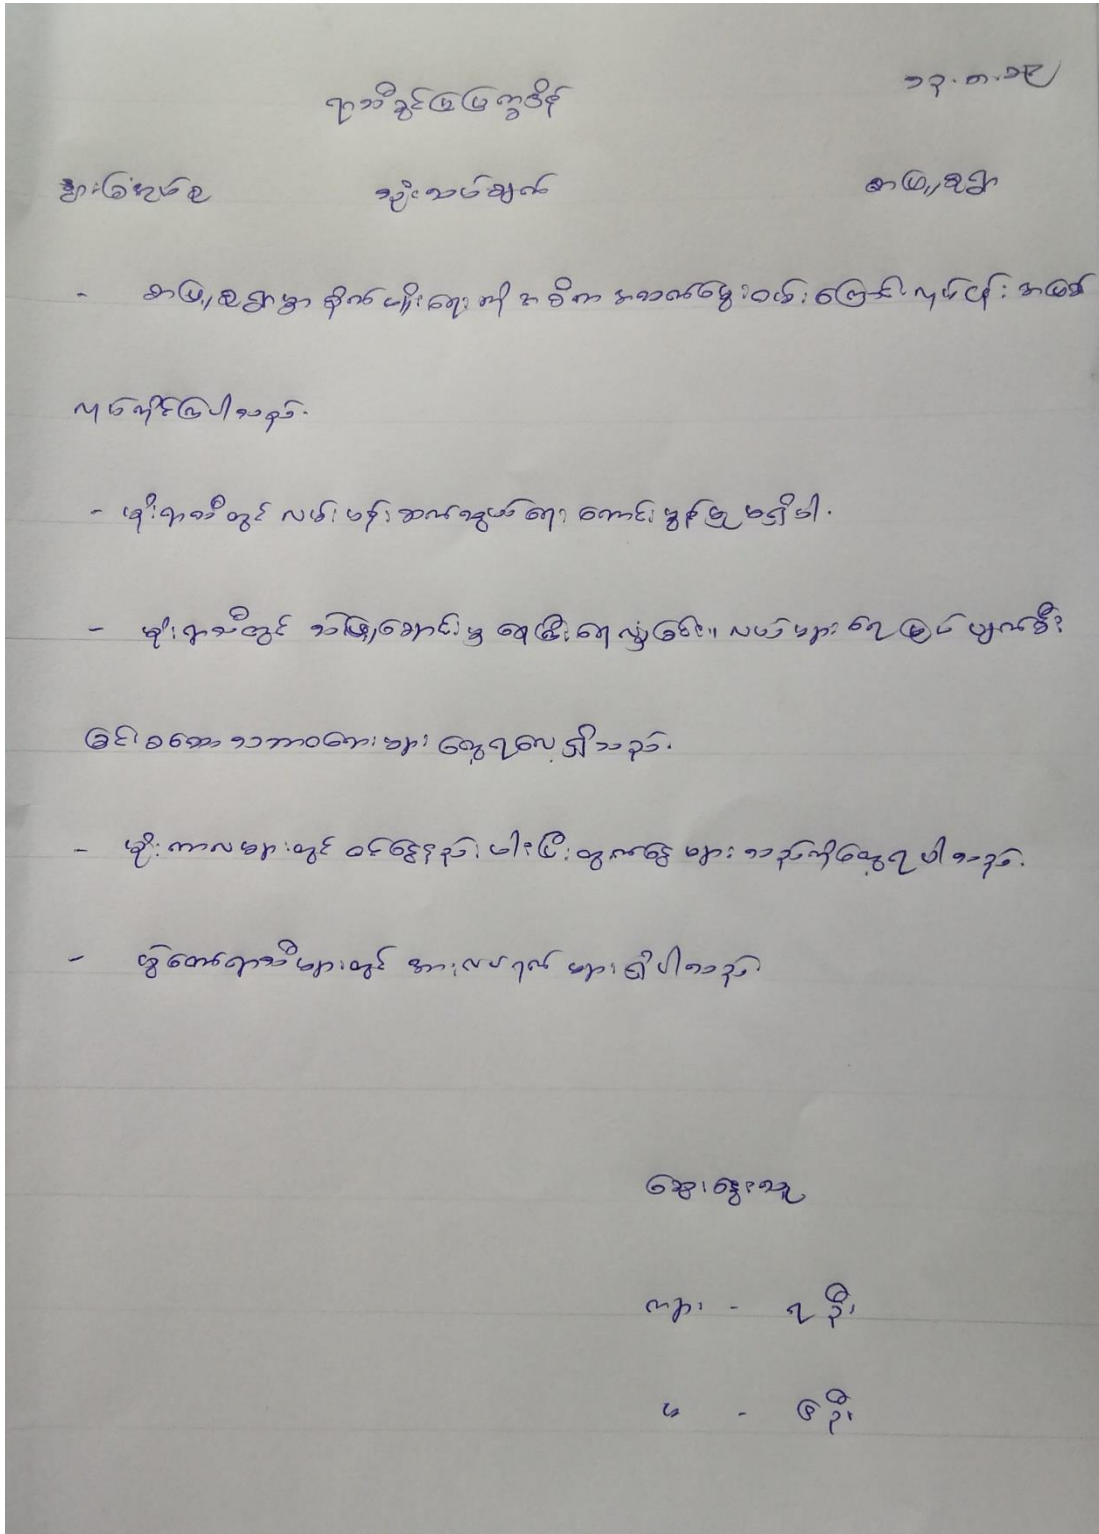 ၁၃.၈.၁၉
ရာသီခွင်ပြမြေပြက္ခဒိန်
နွားခြံအုပ်စု သုံးသပ်ချက် စာမြို့ရွာ
- ရွာမှာ စိုက်ပျိုးရေးကို အဓိက အသက်မွေးဝမ်းကြောင်းလုပ်ငန်း အဖြစ်
လုပ်ကိုင်ကြပါသည်.
- မိုးရာသီတွင် လမ်းပန်းဆက်သွယ်ရေး ကောင်းမွန်မှု မရှိပါ.
- မိုးရာသီတွင် ချောင်းမှ ရေကြီးရေလျှံခြင်း၊ လယ်များ ရေမြုပ်ပျက်စီး
ခြင်း စသော သဘာဝဘေးများ တွေ့ရလေ့ရှိသည်.
- မိုးကာလများတွင် ဝင်ငွေနည်းပါးပြီး ထွက်ငွေ များသည်ကိုတွေ့ရပါသည်.
- ပွဲတော်ရာသီများတွင် အားလပ်ရက် များရှိပါသည်
ဆွေးနွေးသူ
ကျား - ၇ ဦး
မ - ၆ ဦး